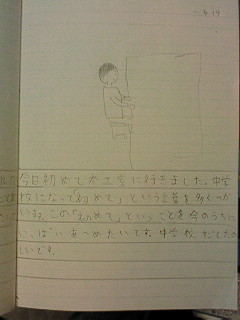 4.19
今日初めて加工室に行きました。中学
校になって「初めて」という言葉を多くつか
います。この「初めて」ということを今のうちに
いっぱいあつめたいです。中学校たのし
いです。